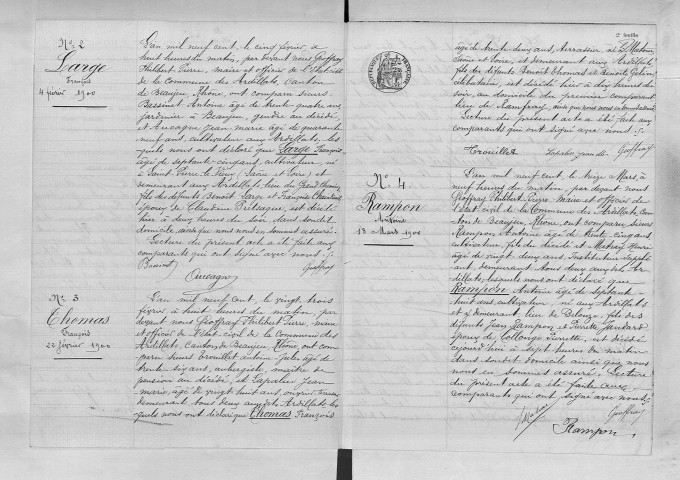 N° 2
Large
François
4 février 1900
L'an mil neuf cent, le cinq février à
huit heures du matin, par devant nous Geoffray
Philibert Pierre, maire et officier de l'état civil
de la commune des Ardillats, canton
de Beaujeu, Rhône, ont comparu sieurs
Antoine âgé de trente quatre ans,
jardinier à Beaujeu, gendre au décédé,
et Aucagne Jean Marie âgé de quarante
neuf ans, cultivateur aux Ardillats, les
quels nous ont déclaré que Large François,
âgé de septante cinq ans, cultivateur, né
à Saint (Saône et Loire) et
demeurant aux Ardillats, lieu du
fils des défunts Benoît Large et Françoise
époux de Claudine est décédé
hier à deux heures du soir dans son dit
domicile, ainsi que nous nous en sommes assuré.
Lecture du présent acte a été fait aux
comparants qui ont signé avec nous.
Geoffray
Aucagne
N° 3
Thomas
François
22 février 1900
L'an mil neuf cent, le vingt trois
février à huit heures du matin, par
devant nous Geoffray Philibert Pierre, maire
et officier de l'état civil de la commune des
Ardillats, canton de Beaujeu, Rhône, ont com
paru sieurs Trouillet Antoine Jules âgé de
trente six ans, aubergiste, maître de
pension au décédé, et Lapalus Jean
Marie, âgé de vingt huit ans,
demeurant tous deux aux dits Ardillats, les
quels nous ont déclaré que Thomas François
2e feuille
âgé de trente deux ans, terrassier, né à
Saône et Loire, et demeurant aux Ardillats,
fils des défunts Benoît Thomas et Benoîte
célibataire, est décédé hier à dix heures du
soir, au domicile du premier comparant
lieu de ainsi que nous nous en sommes assuré
Lecture du présent acte a été fait aux
comparants qui ont signé avec nous.
Trouillet Lapalus Jean Geoffray
N° 4
Rampon
Antoine
13 Mars 1900
L'an mil neuf cent, le treize Mars, à
neuf heures du matin, par devant nous
Geoffray Philibert Pierre, maire et officier de
l'état civil de la Commune des Ardillats, can
ton de Beaujeu, Rhône, ont comparu sieurs
Rampon Antoine âgé de trente cinq ans
cultivateur, fils du décédé et Matray
âgé de vingt deux ans Instituteur supplé
ant, demeurant tous deux aux dits Ar
dillats, lesquels nous ont déclaré que
Rampon Antoine âgé de septante
huit ans, cultivateur, né aux Ardillats
et y demeurant, lieu de fils des
défunts Jean Rampon et Pierrette
époux de Collonge Pierrette, est décédé
cejourd'hui à sept heures du matin
dans son dit domicile ainsi que nous
nous en sommes assuré. Lecture
du présent acte a été faite aux
comparants qui ont signé avec nous.
Geoffray
Rampon